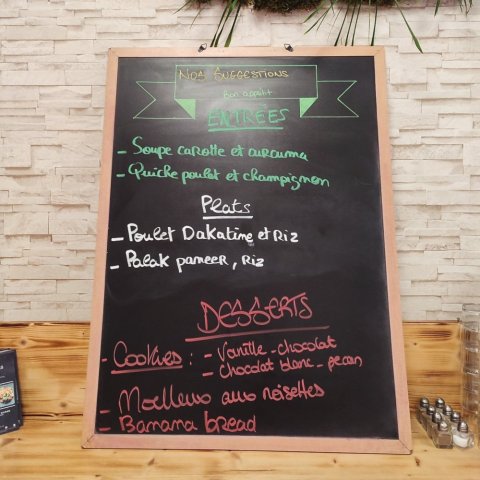 Nos Suggestions
Bon appétit
ENTREES
- Soupe carotte et curcuma
- Quiche poulet et champignon
Plats
- Poulet Dakatine et Riz
- Palak paneer, Riz
DESSERTS
- Cookies : - Vanille - chocolat
- chocolat blanc - pecan
- Moelleux aux noisettes
- Banana bread